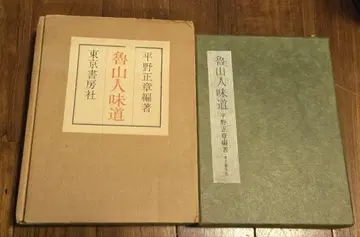 平野正章編著
魯山人味道
東京書房社
魯山人味道
平野正章編著